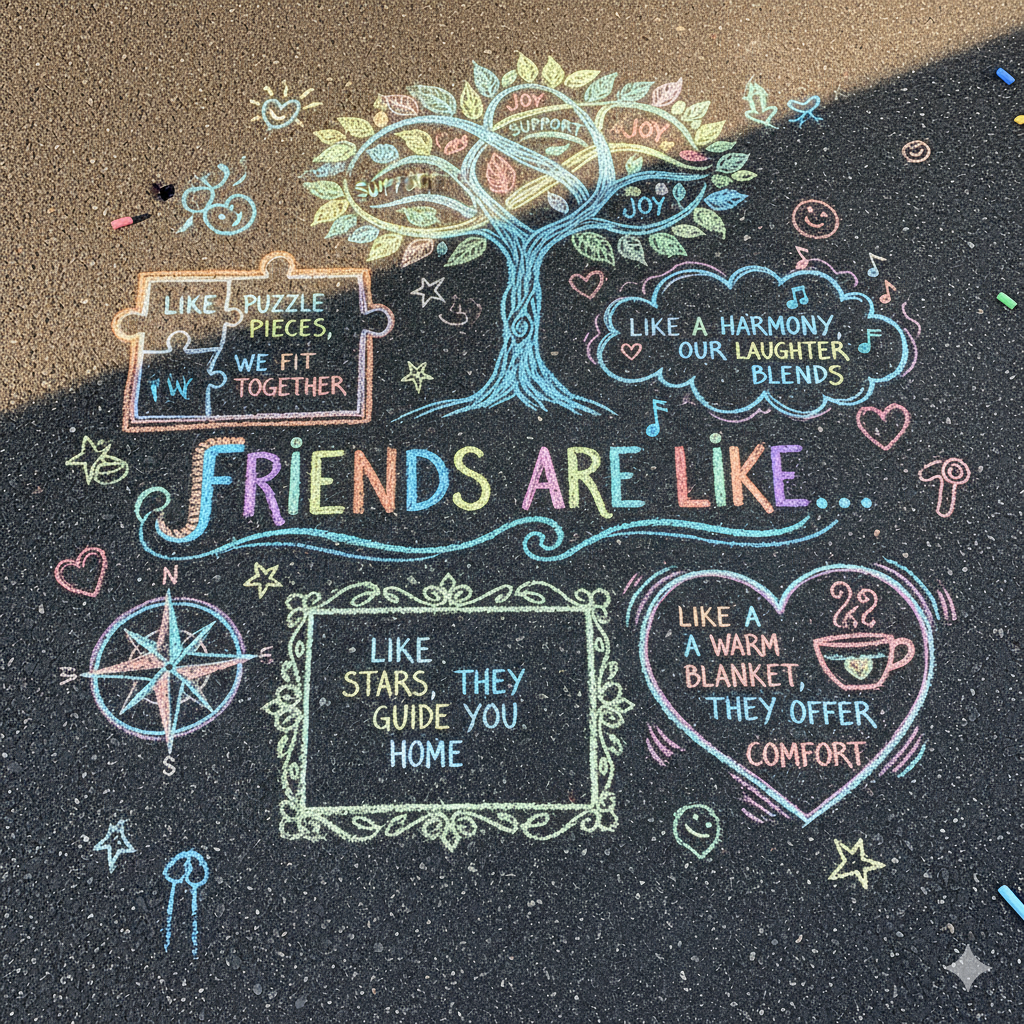 JOY
SUPPORT
JOY
JOY
LIKE PUZZLE
PIECES,
WE FIT
TOGETHER
LIKE A HARMONY,
OUR LAUGHTER
BLENDS
FRIENDS ARE LIKE...
N
S
LIKE
STARS, THEY
GUIDE YOU
HOME
LIKE A
A WARM
BLANKET,
THEY OFFER
COMFORT